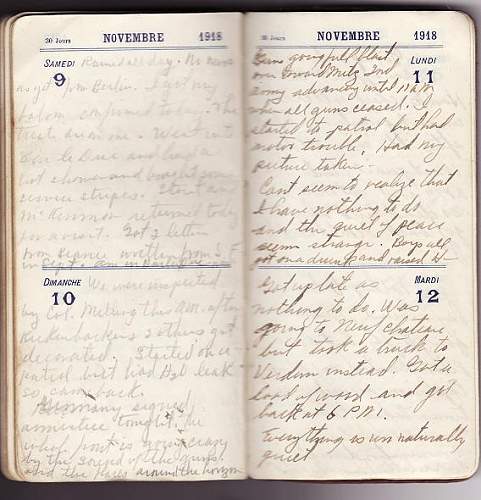 30 Jours NOVEMBRE 1918
SAMEDI
9
Rained all day. No news
as yet from Berlin. I got my
confirmed today. The
first one. Went into
Bar le Duc and had a
hot shower and bought some
service stripes. Stout and
McKinnon returned today
for a visit. Got 2 letters
from written from S.F.
in Sept.
DIMANCHE
10
We were inspected
by Col. Milling this A.M. after
Rickenbacker & 2 others got
decorated. Started on a
patrol but had H2O leak
so came back.
Germany signed
armistice tonight. The
whole post is going crazy
by the sound of the guns
and the flares around the horizon
30 Jours NOVEMBRE 1918
LUNDI
11
Guns going full blast
over toward Metz 2nd
army advancing until 11 A.M.
when all guns ceased. I
started to patrol but had
motor trouble. Had my
picture taken.
Cant seem to realize that
I have nothing to do
and the quiet of peace
seems strange. Boys all
got on a drunk and raised H—
MARDI
12
Got up late as
nothing to do. Was
going to Neufchateau
but took a truck to
Verdun instead. Got a
load of wood and got
back at 6 P.M.
Everything is un naturally
quiet